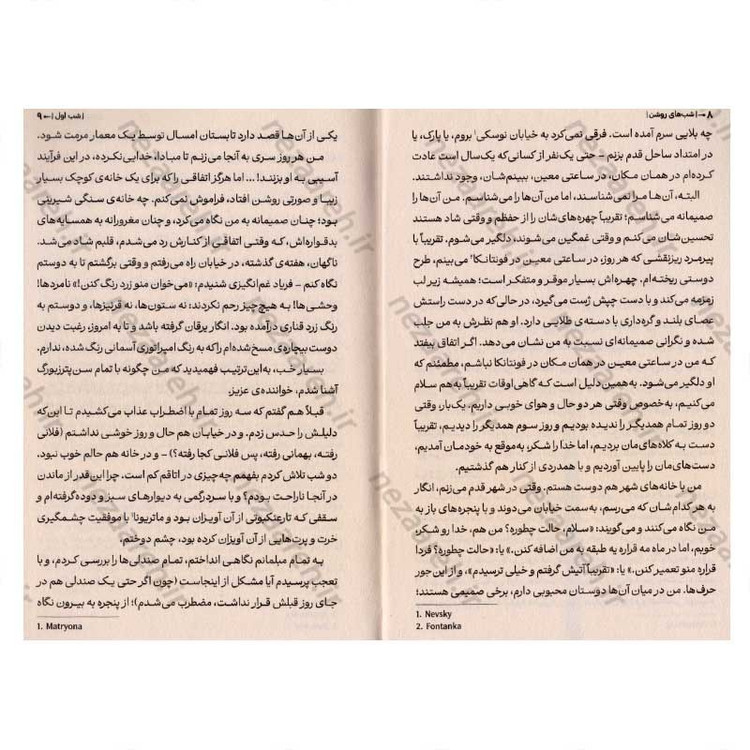 ۸ ← | شب‌های روشن |
چه بلایی سرم آمده است. فرقی نمی‌کرد به خیابان نوسکی¹ بروم، یا پارک، یا
در امتداد ساحل قدم بزنم – حتی یک‌نفر از کسانی‌که یک‌سال است عادت
کرده‌ام در همان مکان، در ساعتی معین، ببینم‌شان، وجود نداشتند.
البته، آن‌ها مرا نمی‌شناسند، اما من آن‌ها را می‌شناسم. من آن‌ها را
صمیمانه می‌شناسم؛ تقریباً چهره‌های‌شان را از حفظم و وقتی شاد هستند
تحسین‌شان می‌کنم و وقتی غمگین می‌شوند، دلگیر می‌شوم. تقریباً با
پیرمرد ریزنقشی که هر روز، در ساعتی معین در فونتانکا² می‌بینم، طرح
دوستی ریخته‌ام. چهره‌اش بسیار موقر و متفکر است؛ همیشه زیر لب
زمزمه می‌کند و با دست چپش ژست می‌گیرد، در حالی‌که در دست راستش
عصای بلند و گره‌داری با دسته‌ی طلایی دارد. او هم نظرش به من جلب
شده و نگرانی صمیمانه‌ای نسبت به من نشان می‌دهد. اگر اتفاق بیفتد
که من در ساعتی معین در همان مکان در فونتانکا نباشم، مطمئنم که
او دلگیر می‌شود. به‌همین دلیل است که گاهی‌اوقات تقریباً به‌هم سلام
می‌کنیم، به‌خصوص وقتی هر دو حال و هوای خوبی داریم. یک‌بار، وقتی
دو روز تمام همدیگر را ندیده بودیم و روز سوم همدیگر را دیدیم، تقریباً
دست به کلاه‌های‌مان بردیم، اما خدا را شکر، به‌موقع به خودمان آمدیم،
دست‌های‌مان را پایین آوردیم و با همدردی از کنار هم گذشتیم.
من با خانه‌های شهر هم دوست هستم. وقتی در شهر قدم می‌زنم، انگار
به هر کدام‌شان که می‌رسم، به‌سمت خیابان می‌دوند و با پنجره‌های باز به
من نگاه می‌کنند و می‌گویند: «سلام، حالت چطوره؟ من هم، خدا رو شکر،
خوبم، اما در ماه مه قراره یه طبقه به من اضافه کنن.» یا: «حالت چطوره؟ فردا
قراره منو تعمیر کنن.» یا: «تقریباً آتیش گرفتم و خیلی ترسیدم.»، و از این جور
حرف‌ها. من در میان آن‌ها دوستان محبوبی دارم، برخی صمیمی هستند؛
1. Nevsky
2. Fontanka
| شب اول | → ۹
یکی از آن‌ها قصد دارد تابستان امسال توسط یک معمار مرمت شود.
من هر روز سری به آنجا می‌زنم تا مبادا، خدایی‌نکرده، در این فرآیند
آسیبی به او بزنند! ... اما هرگز اتفاقی را که برای یک خانه‌ی کوچک بسیار
زیبا و صورتی روشن افتاد، فراموش نمی‌کنم. چه خانه‌ی سنگی شیرینی
بود؛ چنان صمیمانه به من نگاه می‌کرد، و چنان مغرورانه به همسایه‌های
بدقواره‌اش، که وقتی اتفاقی از کنارش رد می‌شدم، قلبم شاد می‌شد.
ناگهان، هفته‌ی گذشته، در خیابان راه می‌رفتم و وقتی برگشتم تا به دوستم
نگاه کنم – فریاد غم‌انگیزی شنیدم: «می‌خوان منو زرد رنگ کنن!» نامردها!
وحشی‌ها! به هیچ‌چیز رحم نکردند: نه ستون‌ها، نه قرنیزها، و دوستم به
رنگ زرد قناری درآمده بود. انگار یرقان گرفته باشد و تا به امروز، رغبت دیدن
دوست بیچاره‌ی مسخ‌شده‌ام را که به رنگ امپراتوری آسمانی رنگ شده، ندارم.
بسیار خب، به‌این‌ترتیب فهمیدید که من چگونه با تمام سن‌پترزبورگ
آشنا شدم، خواننده‌ی عزیز.
قبلاً هم گفتم که سه روز تمام با اضطراب عذاب می‌کشیدم تا این‌که
دلیلش را حدس زدم. و در خیابان هم حال و روز خوشی نداشتم (فلانی
رفته، بهمانی رفته، پس فلانی کجا رفته؟) – و در خانه هم حالم خوب نبود.
دو شب تلاش کردم بفهمم چه‌چیزی در اتاقم کم است. چرا این‌قدر از ماندن
در آنجا ناراحت بودم؟ و با سردرگمی به دیوارهای سبز و دوده‌گرفته‌ام و
سقفی که تارعنکبوتی از آن آویزان بود و ماتریونا¹ با موفقیت چشمگیری
خرت و پرت‌هایی از آن آویزان کرده بود، چشم دوختم.
به تمام مبلمانم نگاهی انداختم، تمام صندلی‌ها را بررسی کردم، و با
تعجب پرسیدم آیا مشکل از اینجاست (چون اگر حتی یک صندلی هم در
جای روز قبلش قرار نداشت، مضطرب می‌شدم)؛ از پنجره به بیرون نگاه
1. Matryona